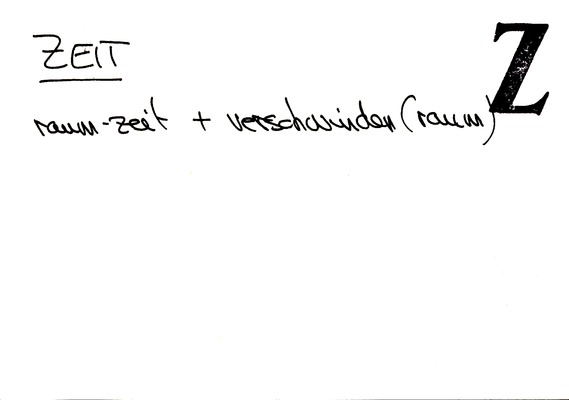 ZEIT
Z
raum-zeit + verschwinden (raum)